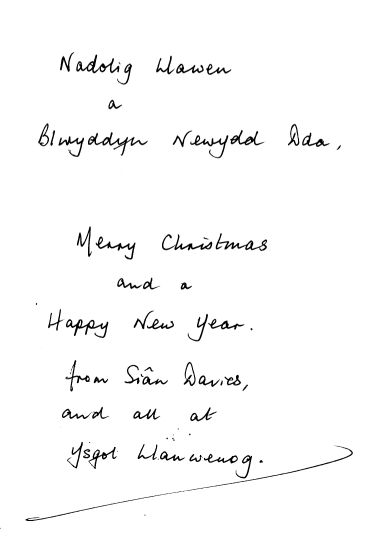 Nadolig Llawen
a
Blwyddyn Newydd Dda,
Merry Christmas
and a
Happy New Year.
from Siân Davies,
and all at
Ysgol Llanwenog.